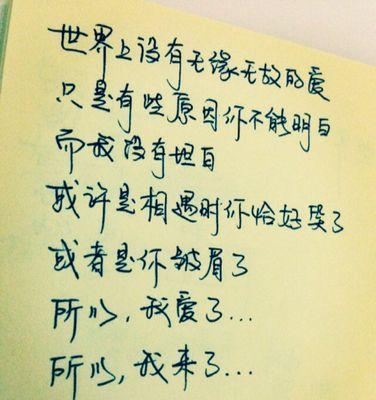 世界上没有无缘无故的爱
只是有些原因你不能明白
而我没有坦白
或许是相遇时你恰好哭了
或者是你皱眉了
所以，我爱了...
所以，我来了...